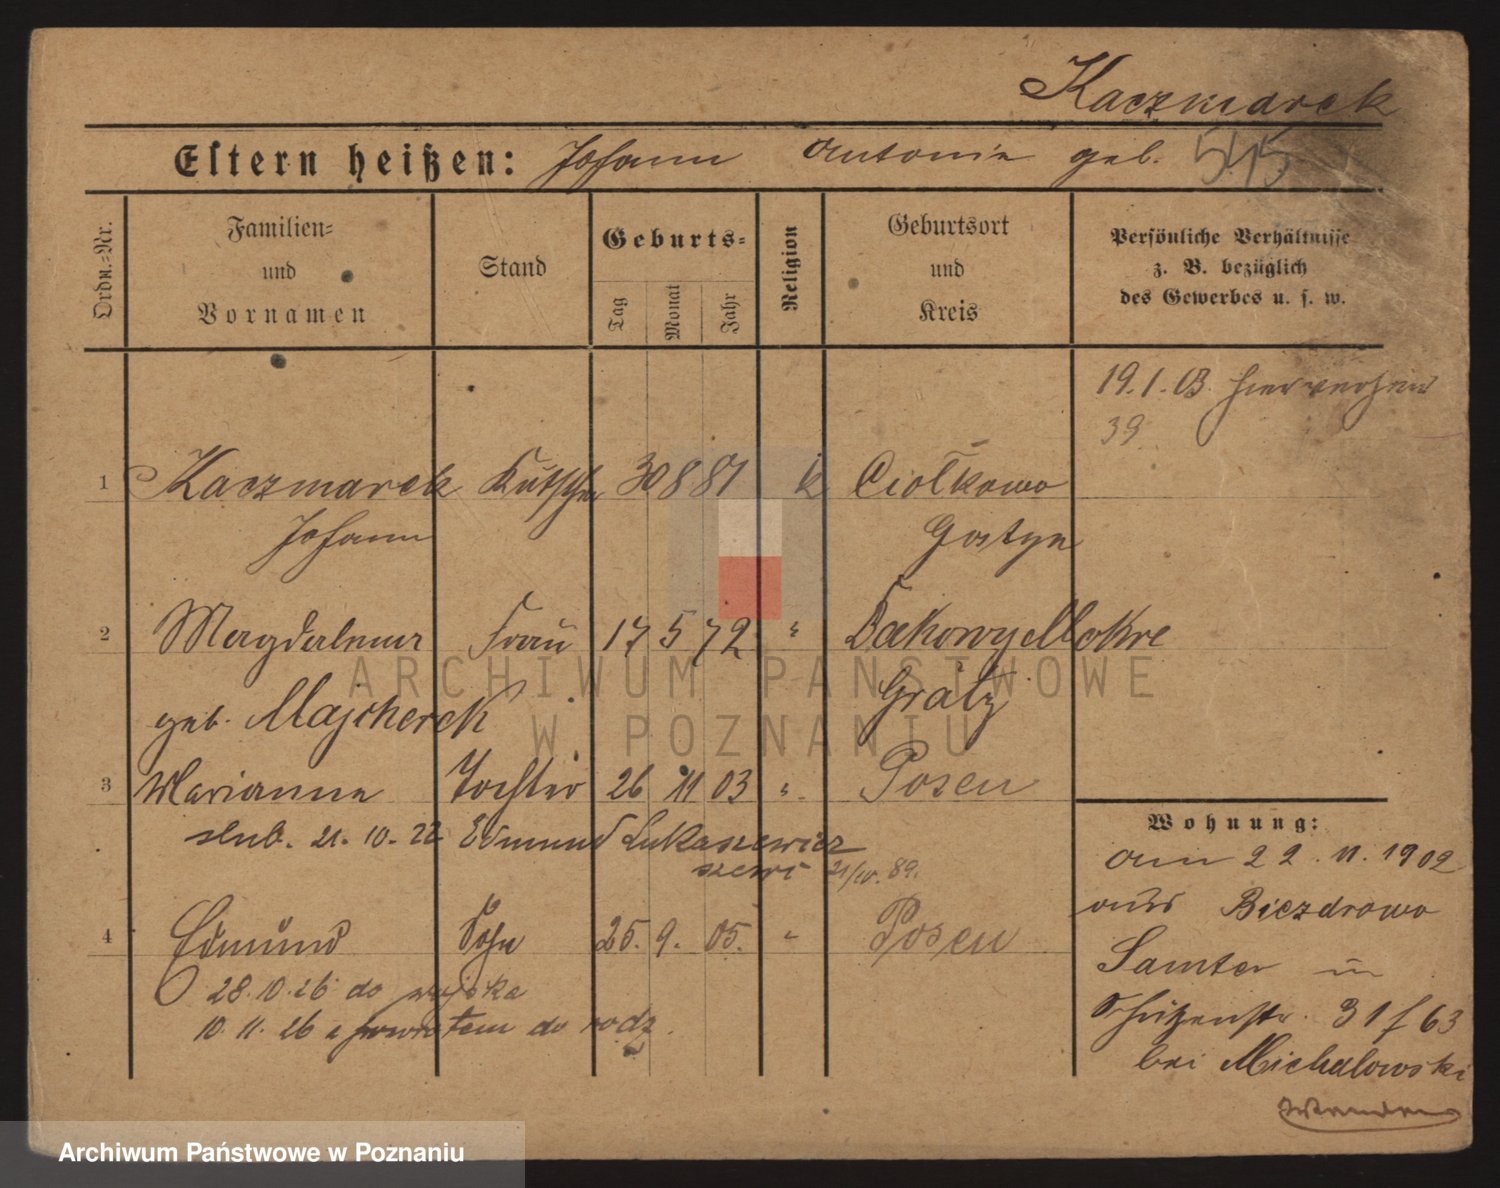 Kaczmarek
Eltern heißen: Johann Antonie geb. 545
Ordn.-Nr.
Familien-
und
Vornamen
Stand
Geburts-
Tag
Monat
Jahr
Religion
Geburtsort
und
Kreis
Persönliche Verhältnisse
z. B. bezüglich
des Gewerbes u. s. w.
19.1.03 hier
39
1 Kaczmarek Kutscher 30 8 81 k Ciołkowo
Johann Gostyn
2 Magdalena Frau 17 5 72 " Dakowy Mokre
geb. Majcherek Grätz
3 Marianne Tochter 26 11 03 " Posen
slub. 21.10.22 Edmund Lukaszewicz
szewc 21/IV.89.
4 Edmund Sohn 25. 9. 05. " Posen
28.10.26 do wojska
10.11.26 z powrotem do rodz.
Wohnung:
am 22.11.1902
aus Biezdrowo
Samter in
Schützenstr. 31 f 63
bei Michalowski
ARCHIWUM PAŃSTWOWE
W POZNANIU
Archiwum Państwowe w Poznaniu